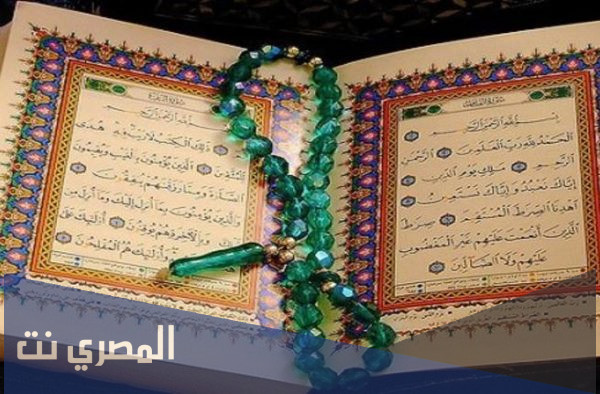 سُورَةُ الفَاتِحَةِ
بِسْمِ اللَّهِ الرَّحْمَٰنِ الرَّحِيمِ
الْحَمْدُ لِلَّهِ رَبِّ الْعَٰلَمِينَ الرَّحْمَٰنِ
الرَّحِيمِ مَٰلِكِ يَوْمِ الدِّينِ
إِيَّاكَ نَعْبُدُ وَإِيَّاكَ نَسْتَعِينُ
اهْدِنَا الصِّرَٰطَ الْمُسْتَقِيمَ صِرَٰطَ
الَّذِينَ أَنْعَمْتَ عَلَيْهِمْ غَيْرِ الْمَغْضُوبِ
عَلَيْهِمْ وَلَا الضَّالِّينَ
سُورَةُ البَقَرَةِ
بِسْمِ اللَّهِ الرَّحْمَٰنِ الرَّحِيمِ
ذَٰلِكَ الْكِتَٰبُ لَا رَيْبَ فِيهِ هُدًى
الَّذِينَ يُؤْمِنُونَ بِالْغَيْبِ وَيُقِيمُونَ
الصَّلَوٰةَ وَمِمَّا رَزَقْنَٰهُمْ يُنفِقُونَ
وَالَّذِينَ يُؤْمِنُونَ بِمَا أُنزِلَ إِلَيْكَ وَمَا أُنزِلَ مِن
وَبِالْآخِرَةِ هُمْ يُوقِنُونَ أُولَٰئِكَ عَلَىٰ
وَأُولَٰئِكَ هُمُ الْمُفْلِحُونَ
المصري نت